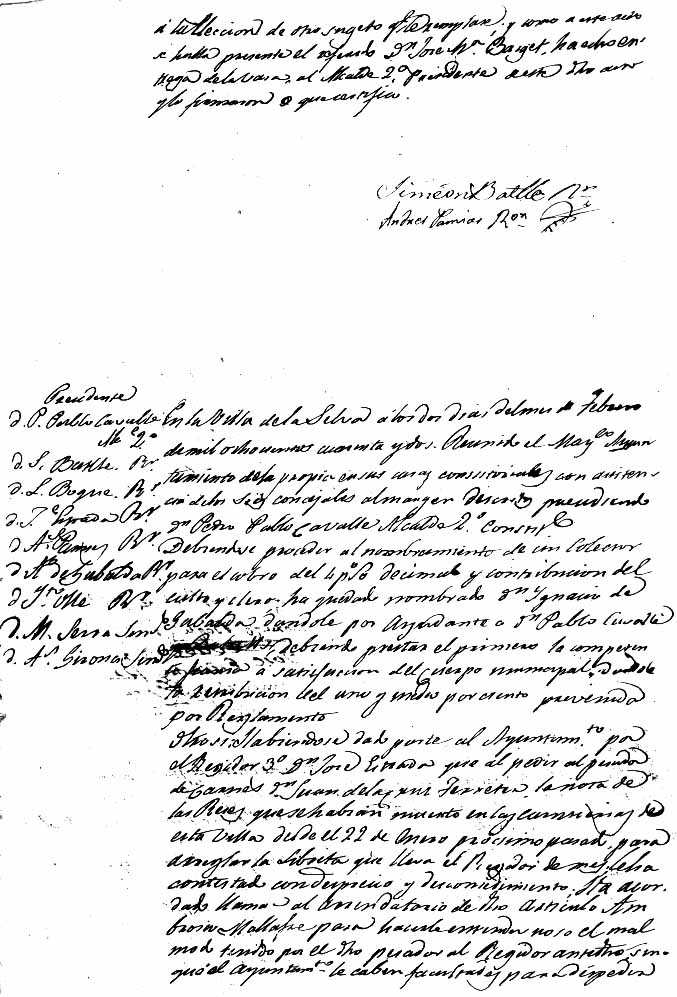 á la eleccion de otro sugeto qe. le remplaze, y como a este acto
se halla presente el referido Dn. Jose Ma. Barget, ha echo en-
trega de la vara al Alcalde 2.o Presidente de este dho acto
y lo firmaron de que certifico.
Simeon Batlle Rr
Andres Pamias Ron
Presidente
d. P. Pablo Cavalle
Ale. 2.o
d. S. Batlle. Rr.
d. L. Bogue. Rr.
d. Je. Estrada Rr.
d. As. Pamies Rr.
d. No. de Gabalda Rr.
d. Jn. Olle Rr.
d. M. Serra Sind.
d. As. Girona Sind.
En la Villa de la Selva á los dos dias del mes de Febrero
de mil ochocientos cuarenta y dos. Reunido el Mag.co Ayun-
tamiento de la propia en sus casas consistoriales con asisten-
cia de los Seis concejales al margen descritos presidiendo
Dn Pedro Pablo Cavalle Alcalde 2.o Constl.
Debiendose proceder al nombramiento de un Colector
para el cobro del 4 p% decimal y contribucion del
culto y clero, ha quedado nombrado Dn. Ygnacio de
Gabalda dandole por Ayudante a Dn Pablo Cavalle
debiendo prestar el primero la competen
te fianza a satisfaccion del cuerpo municipal, dandole
la retribucion del uno y medio por ciento prevenida
por Reglamento
Otro si: Habiendose dado parte al Ayuntam.to por
el Regidor 3.o Dn Jose Estrada que al pedir al pesador
de Carnes Dn Juan de la Cruz Ferreter la nota de
las Reses que se habian muerto en las carnicerias de
esta Villa desde el 22 de Enero proximo pasado, para
arreglar la Libreta que lleva el Regidor de mes, le ha
contestado con desprecio y descomedimiento. Ha acor-
dado llamar al arrendatario de dho articulo Am-
brosio Mallafre para hacerle entender no solo el mal
modo tenido por el dho pesador al Regidor antedho, sin-
que al Ayuntam.to le caben facultades para despedir